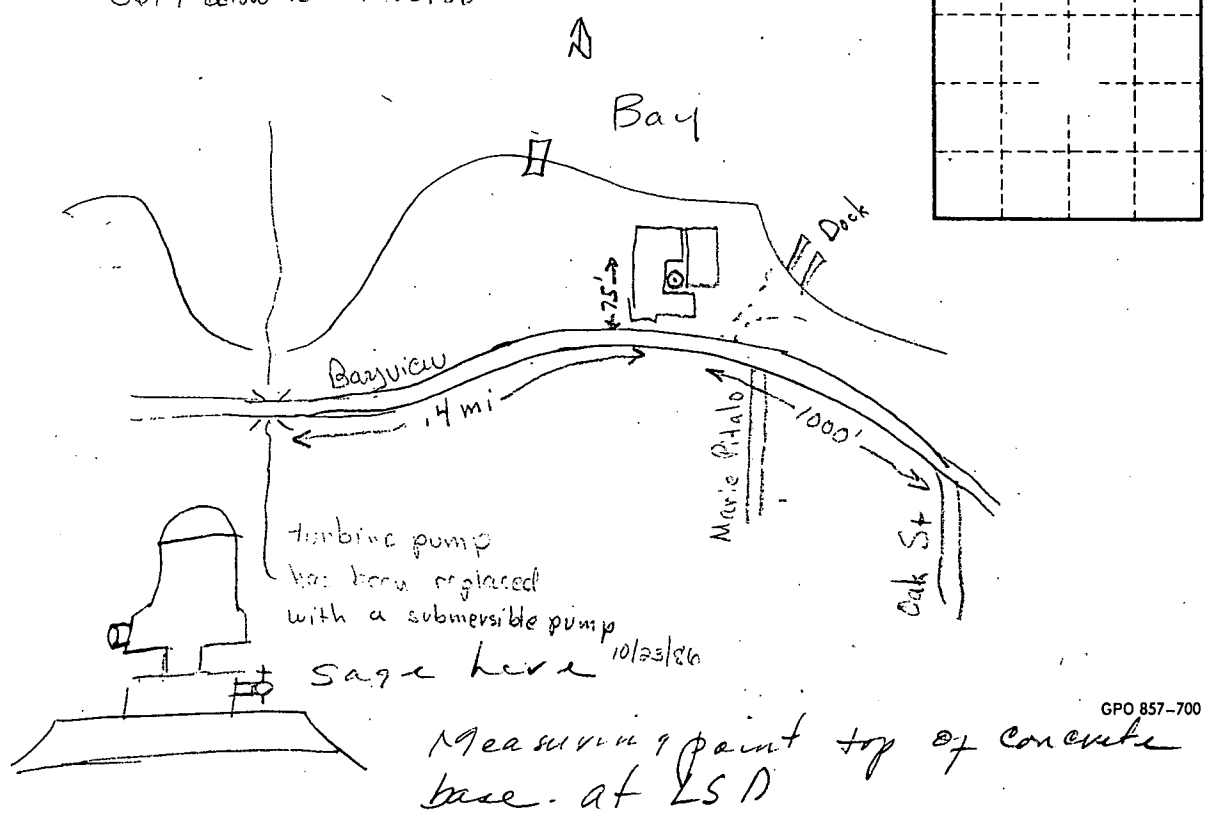 Bay
Dock
75'
Bayview
.4 mi
1000'
Marie Pitalo
Oak St
turbine pump
has been replaced
with a submersible pump
10/23/86
gage here
GPO 857-700
Measuring point top of concrete
base. at LSD